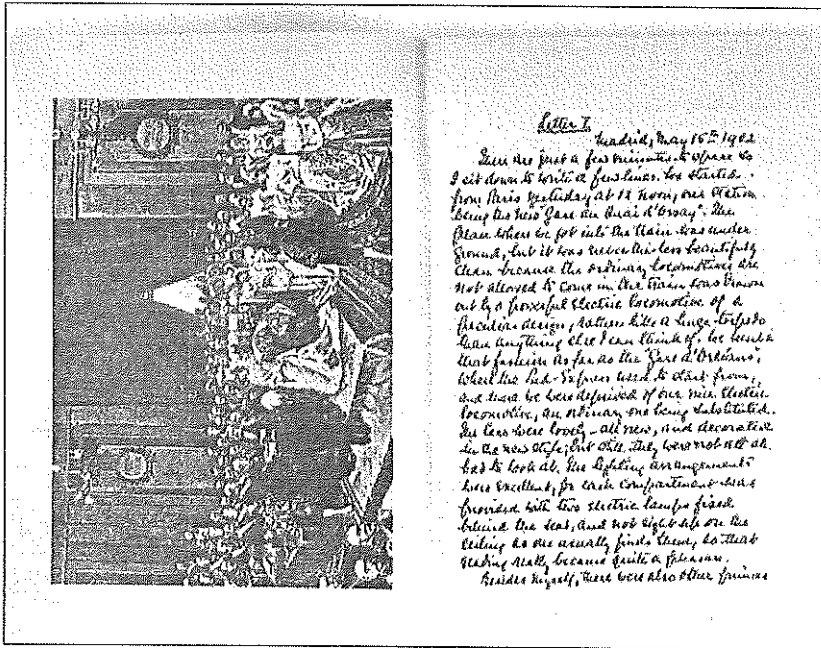 Letter I.
Madrid, May 15th 1902
There are just a few minutes to spare so
I sit down to write a few lines. We started
from Paris yesterday at 12 noon, our station
being the new "Gare du Quai d'Orsay". The
place where we got into the train was under
ground, but it was nevertheless beautifully
clean because the ordinary locomotives are
not allowed to come in. The train was drawn
out by a powerful electric locomotive of a
peculiar design, rather like a huge torpedo
than anything else I can think of. We went in
that fashion as far as the "Gare d'Orléans",
where the Sud-Express used to start from,
and here we were deprived of our nice electric
locomotive, an ordinary one being substituted.
The cars were lovely - all new, and decorated
in the new style, but still they were not at all
bad to look at. The lighting arrangements
were excellent, for each compartment was
provided with two electric lamps fixed
behind the seat, and not right up on the
ceiling as one usually finds them, so that
reading really became quite a pleasure.
Besides myself, there were also other princes